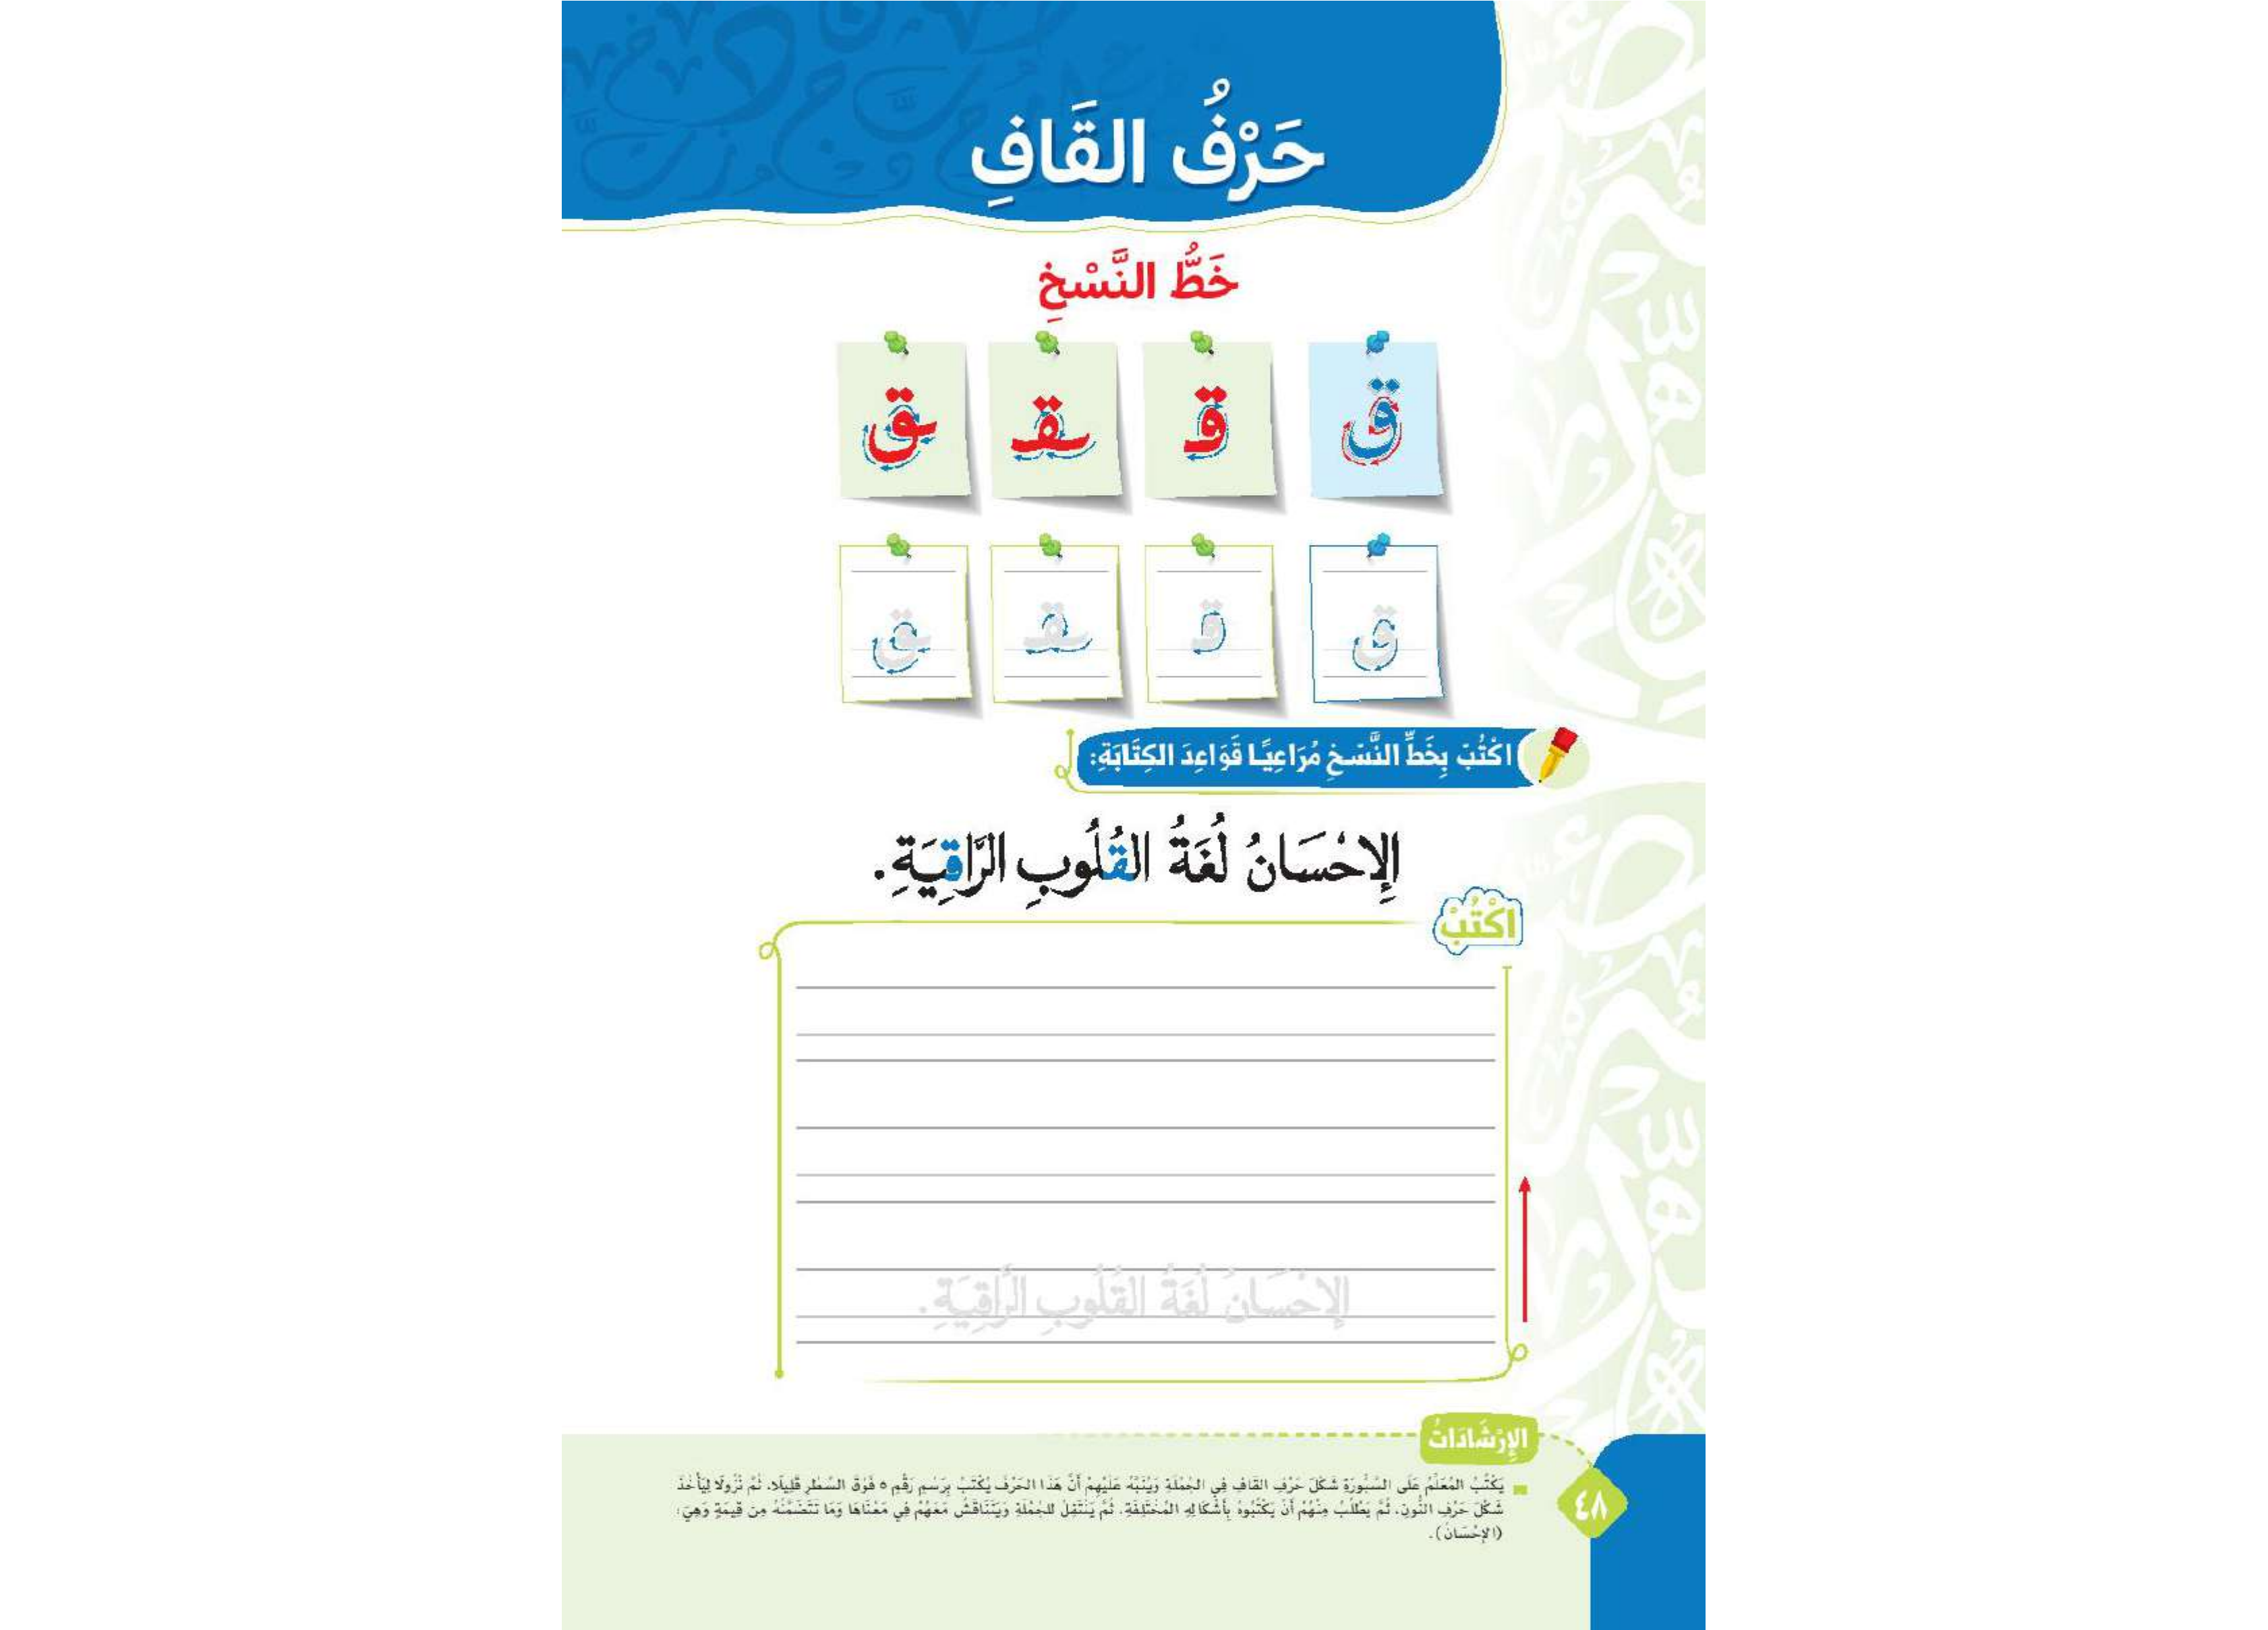 حَرْفُ القَافِ
خَطُّ النَّسْخِ
ق قـ ـقـ ـق
ق قـ ـقـ ـق
اكْتُبْ بِخَطِّ النَّسْخِ مُرَاعِيًا قَوَاعِدَ الكِتَابَةِ:
الإِحْسَانُ لُغَةُ القُلُوبِ الرَّاقِيَةِ.
اكْتُبْ
الإِحْسَانُ لُغَةُ القُلُوبِ الرَّاقِيَةِ.
الإِرْشَادَاتُ
يَكْتُبُ المُعَلِّمُ عَلَى السَّبُّورَةِ شَكْلَ حَرْفِ القَافِ فِي الجُمْلَةِ وَيُنَبِّهُ عَلَيْهِمْ أَنَّ هَذَا الحَرْفَ يُكْتَبُ بِرَسْمِ رَقْمِ ٥ فَوْقَ السَّطْرِ قَلِيلًا، ثُمَّ نُزُولًا لِيَأْخُذَ
شَكْلَ حَرْفِ النُّونِ، ثُمَّ يَطْلُبُ مِنْهُمْ أَنْ يَكْتُبُوهُ بِأَشْكَالِهِ المُخْتَلِفَةِ، ثُمَّ يَنْتَقِلُ لِلجُمْلَةِ وَيَتَنَاقَشُ مَعَهُمْ فِي مَعْنَاهَا وَمَا تَتَضَمَّنُهُ مِن قِيمَةٍ وَهِيَ:
(الإِحْسَانُ).
٤٨